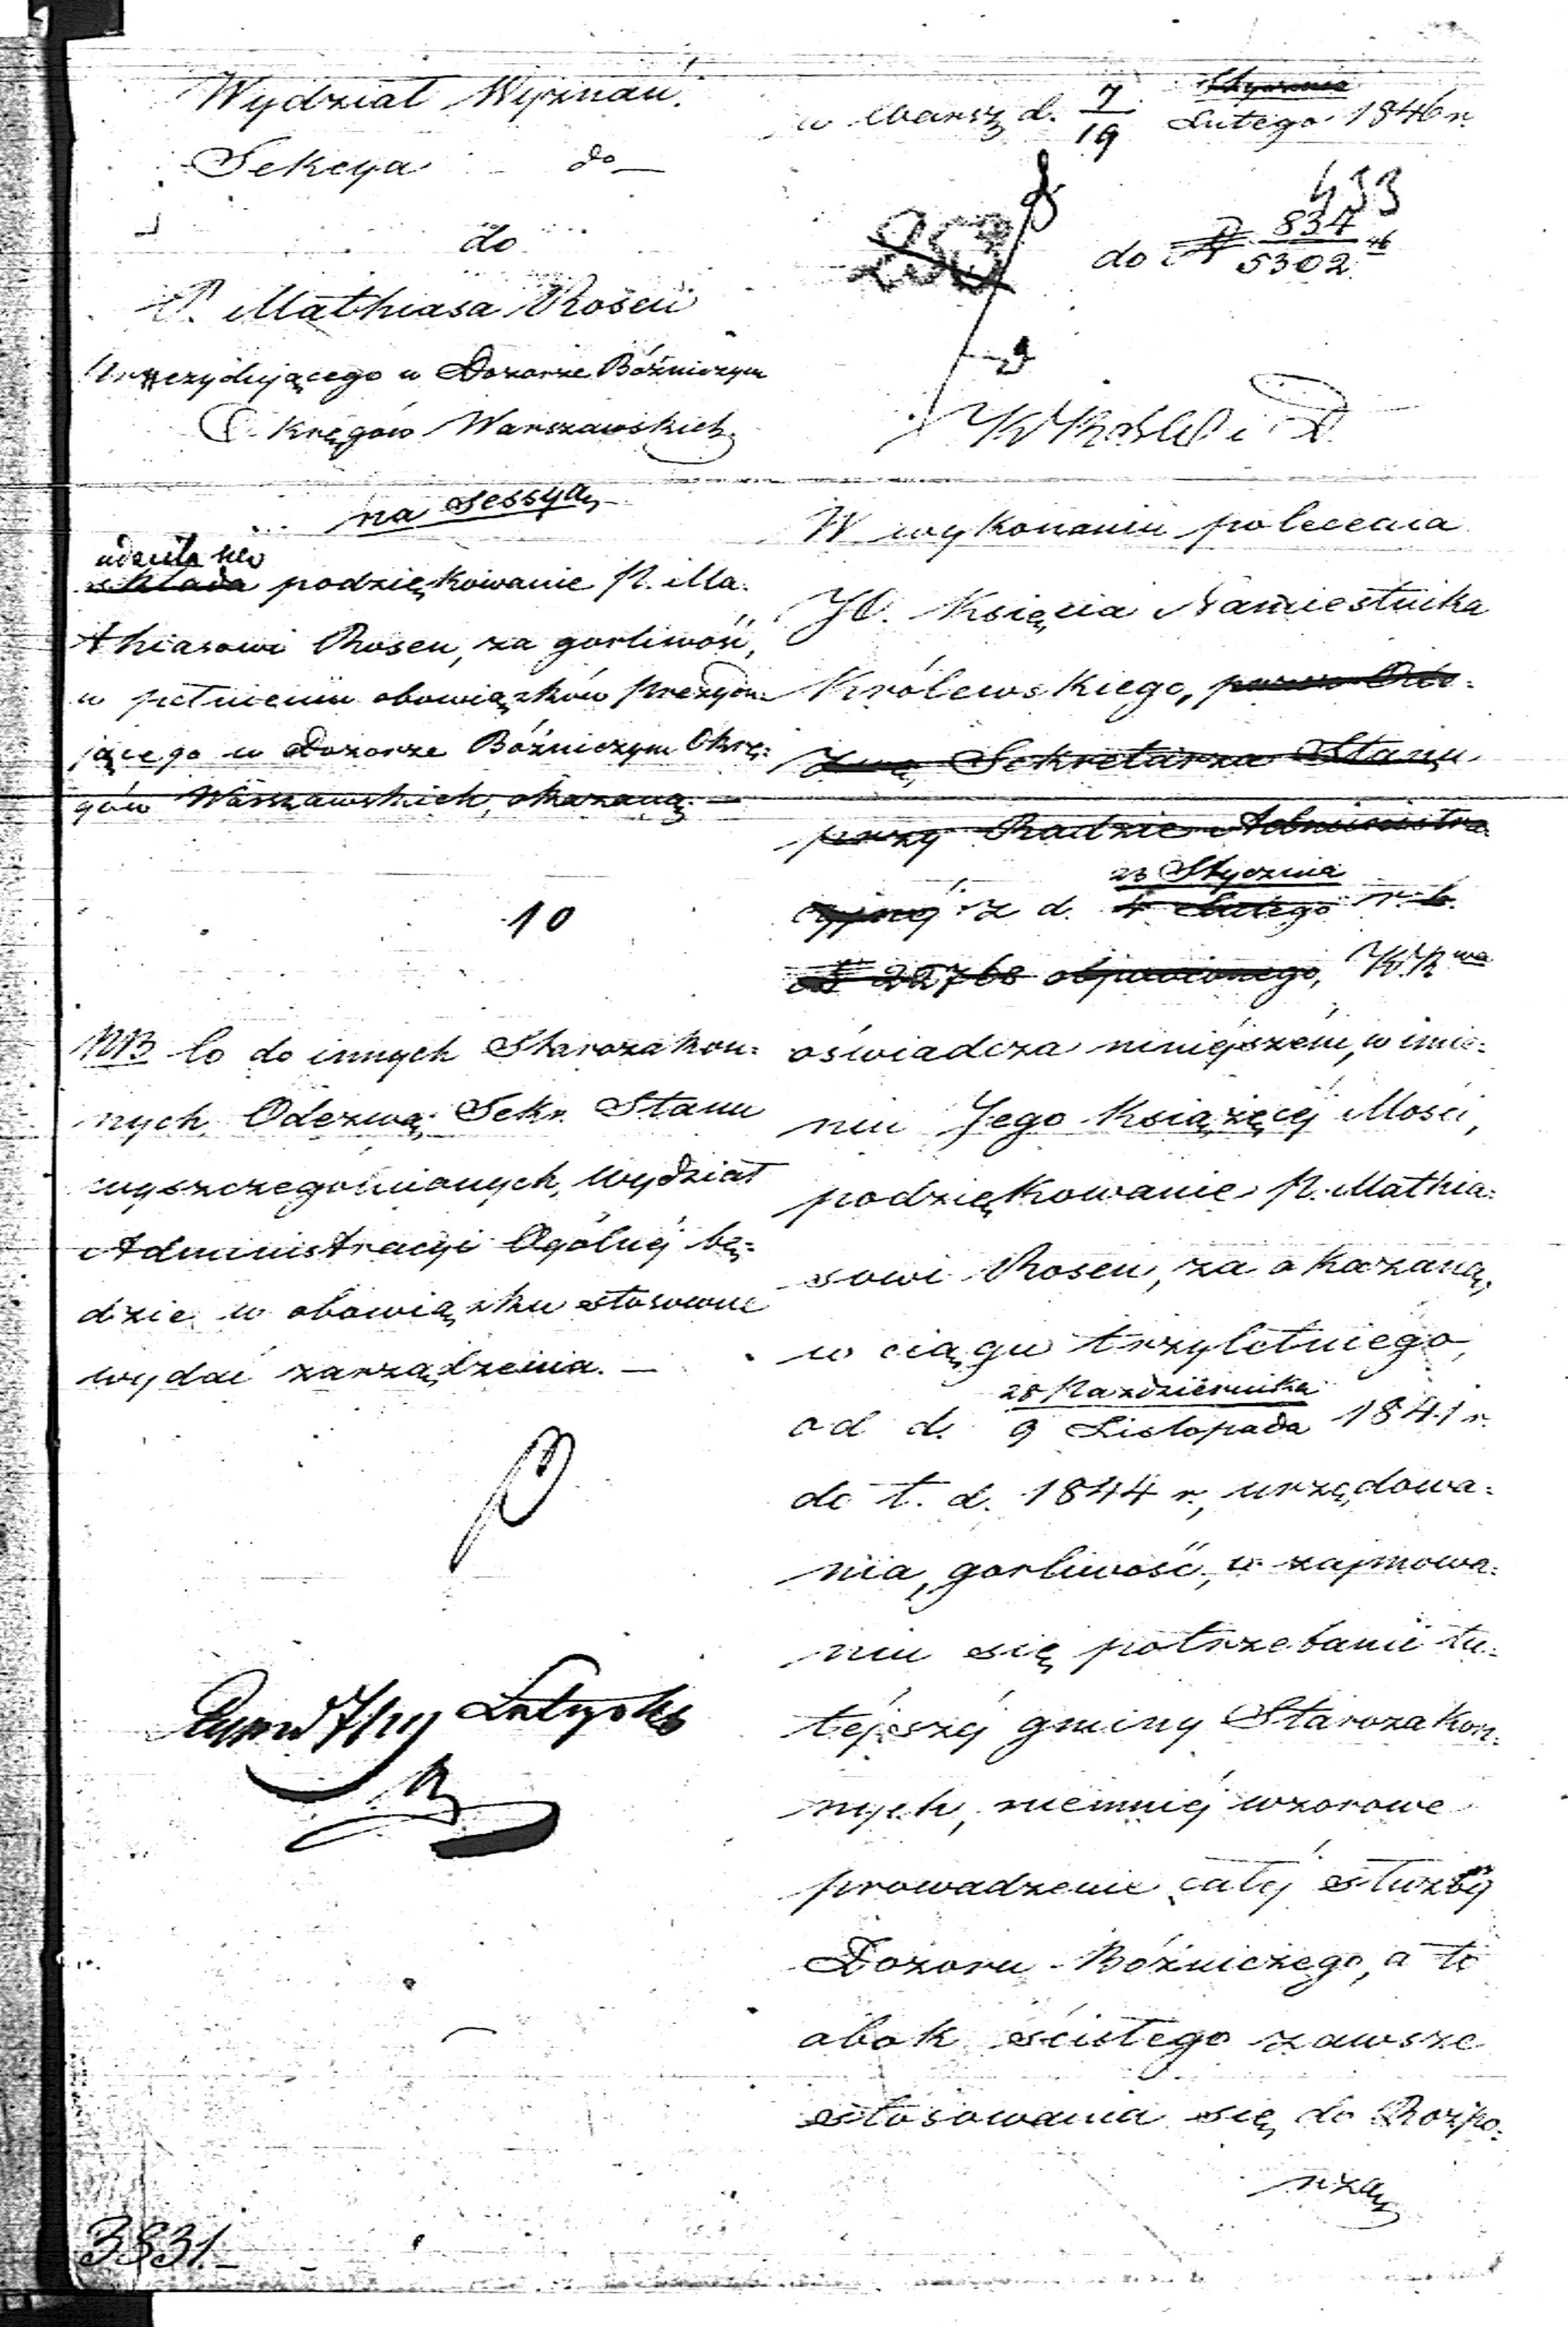 Wydział Wyznań.
Sekcya do
do
P. Mathiasa Rosen
Prezydującego w Dozorze Bóżniczym
Okręgów Warszawskich
na Sessyą
składa podziękowanie P. Ma:
thiasowi Rosen, za gorliwość,
w pełnieniu obowiązków Prezydu:
jącego w Dozorze Bóżniczym Okrę:
gów Warszawskich, okazaną. —
10
NB Co do innych Starozakon:
nych, Odezwą Sekr. Stanu
wyszczególnionych, Wydział
Administracyi Ogólnéj bę:
dzie w obowiązku stosowne
wydać zarządzenia. —
3831.
w Warsz d. 7/19 Stycznia Lutego 1846 r.
433
253
do N 834/5302 46
KRSW i D.
W wykonaniu polecenia
JO. Księcia Namiestnika
Królewskiego, przez Ode:
zwę Sekretarza Stanu
przy Radzie Administra
cyjnej z d. 23 Stycznia / 4 Lutego r. b.
N 22768 objawionego, KR wa
oświadcza niniéjszém, w imie:
niu Jego Książęcéj Mości,
podziękowanie P. Mathia:
sowi Rosen, za okazaną,
w ciągu trzyletniego,
od d. 28 Października / 9 Listopada 1841 r.
do t. d. 1844 r., urzędowa:
nia, gorliwość, w zajmowa:
niu się potrzebami tu:
téjszéj gminy Starozakon:
nych, niemniéj wzorowe
prowadzenie całéj służby
Dozoru Bóżniczego, a to
obok ścisłego zawsze
stosowania się do Rozpo:
rzą